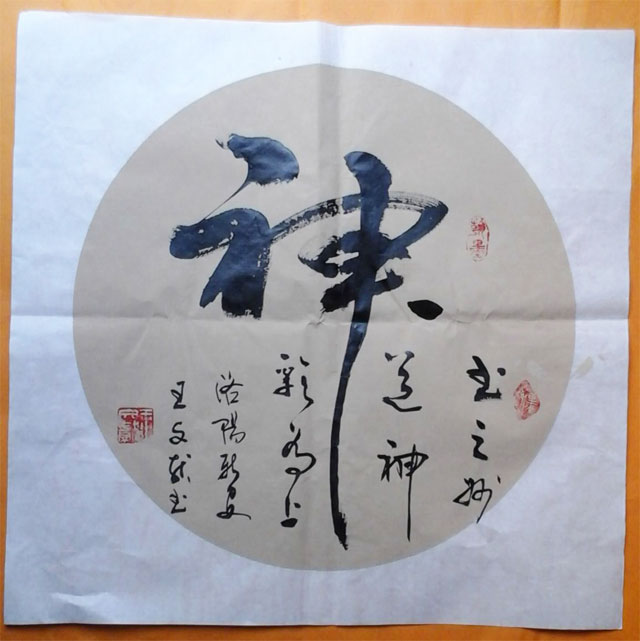 神
书之妙
道神
彩为上
洛陽新安
王文书